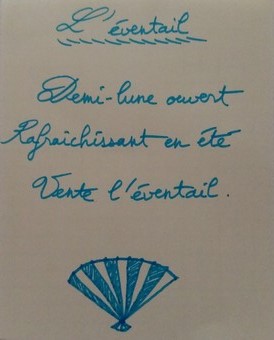 L'éventail
Demi-lune ouvert
Rafraichissant en été
Vente l'éventail.